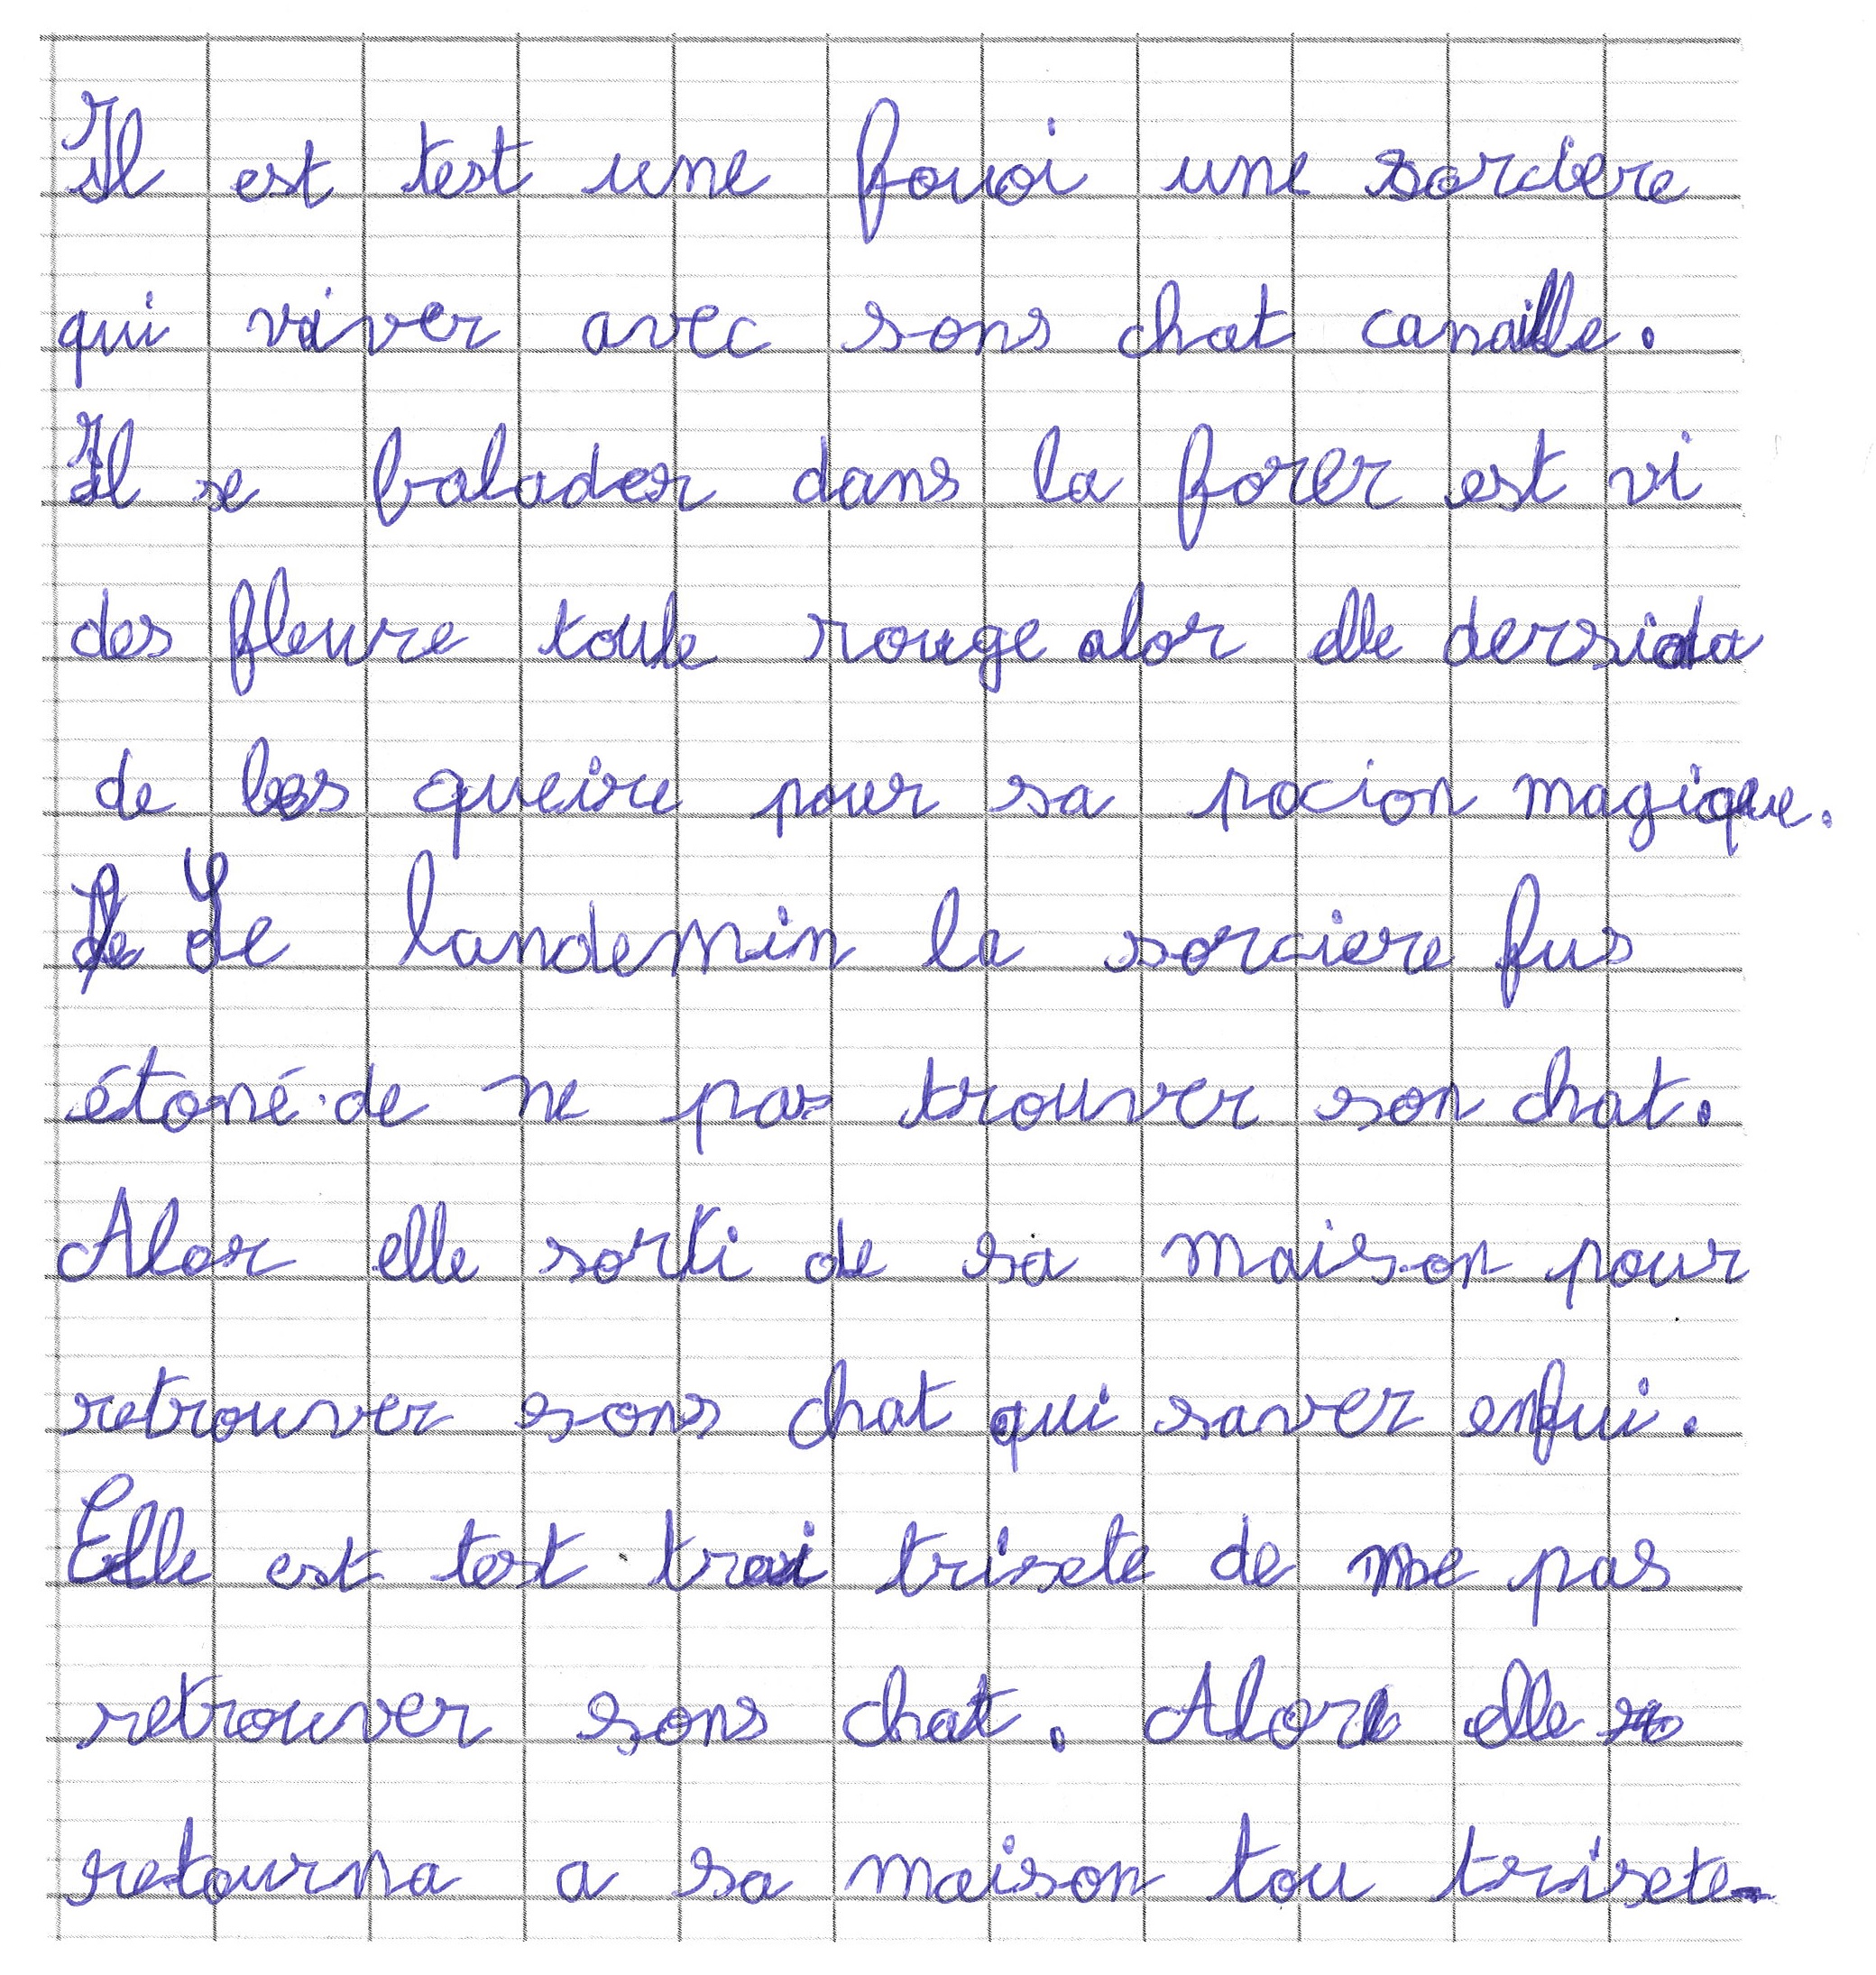 Il est test une fouoi une sorciere
qui viver avec sons chat canaille.
Il se balader dans la forer est vi
des fleure toute rouge alor elle dersida
de les queire pour sa pocion magique.
Le landemin la sorciere fus
étoné de ne pas trouver son chat.
Alor elle sorti de sa maison pour
retrouver sons chat qui saver enfui.
Elle est test trai trisete de ne pas
retrouver sons chat. Alor elle
retourna a sa maison tou trisete